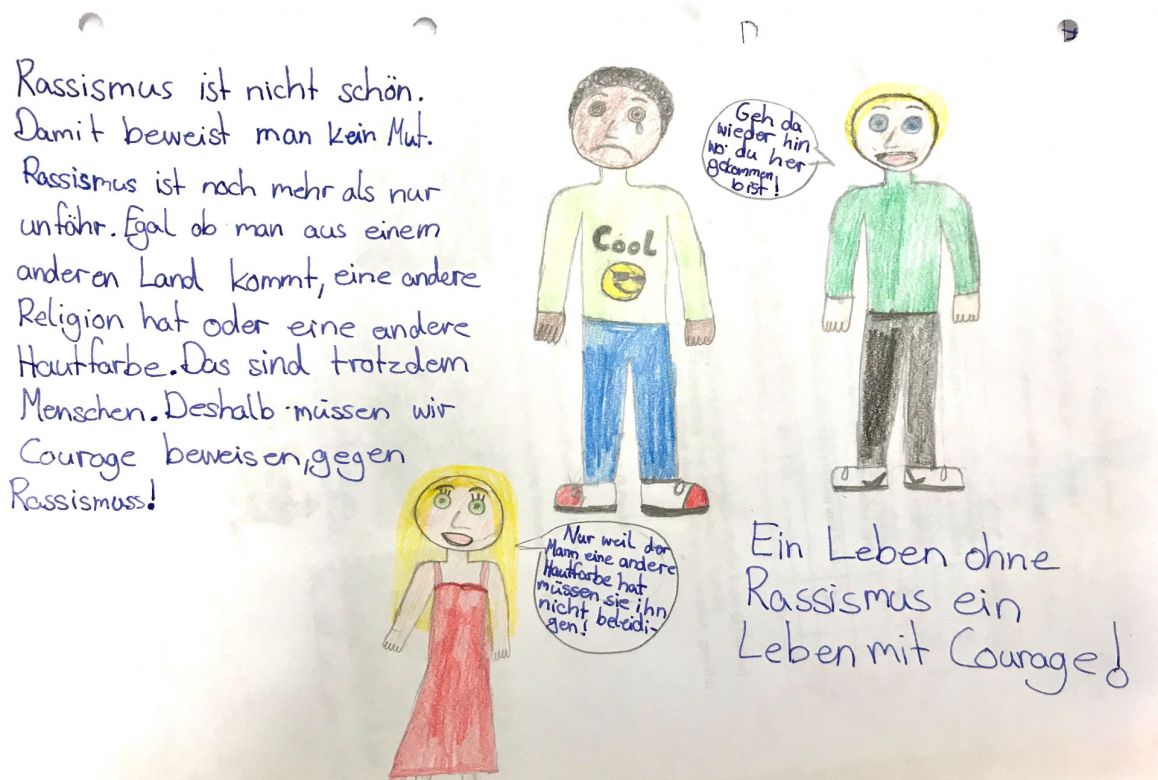 Rassismus ist nicht schön.
Damit beweist man kein Mut.
Rassismus ist noch mehr als nur
unfähr. Egal ob man aus einem
anderen Land kommt, eine andere
Religion hat oder eine andere
Hautfarbe. Das sind trotzdem
Menschen. Deshalb müssen wir
Courage beweisen, gegen
Rassismuss!
Cool
Geh da
wieder hin
wo du her
gekommen
bist!
Nur weil der
Mann eine andere
Hautfarbe hat
müssen sie ihn
nicht beleidi-
gen!
Ein Leben ohne
Rassismus ein
Leben mit Courage!